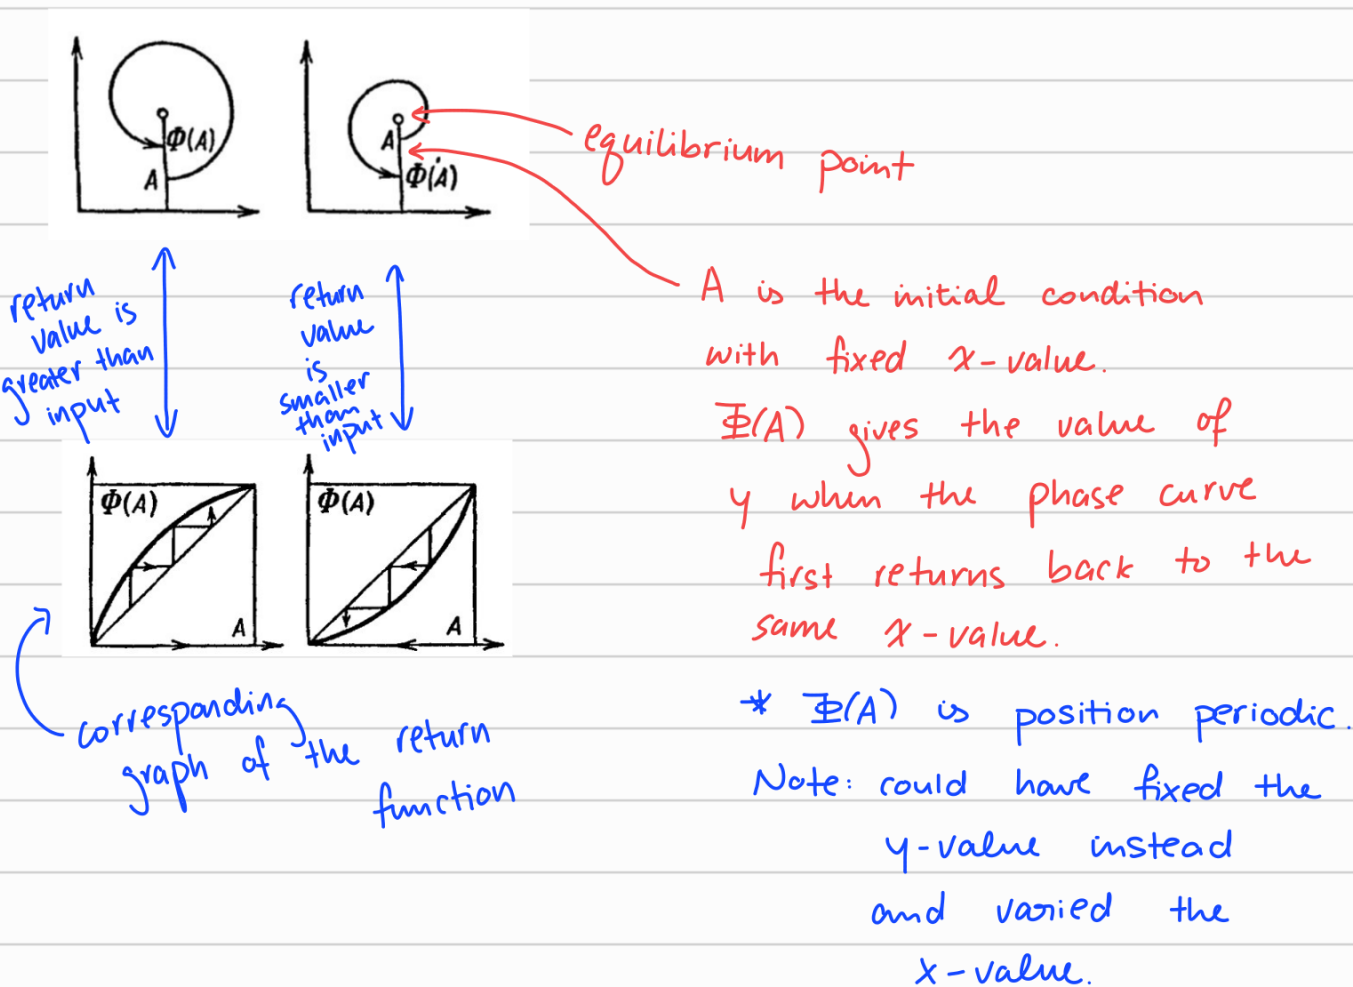 Φ(A)
A
A
Φ(A)
equilibrium point
return
value is
greater than
input
return
value
is
smaller
than
input
A is the initial condition
with fixed x-value.
Φ(A) gives the value of
y when the phase curve
first returns back to the
same x-value.
Φ(A)
A
Φ(A)
A
corresponding
graph of the return
function
* Φ(A) is position periodic.
Note: could have fixed the
y-value instead
and varied the
x-value.